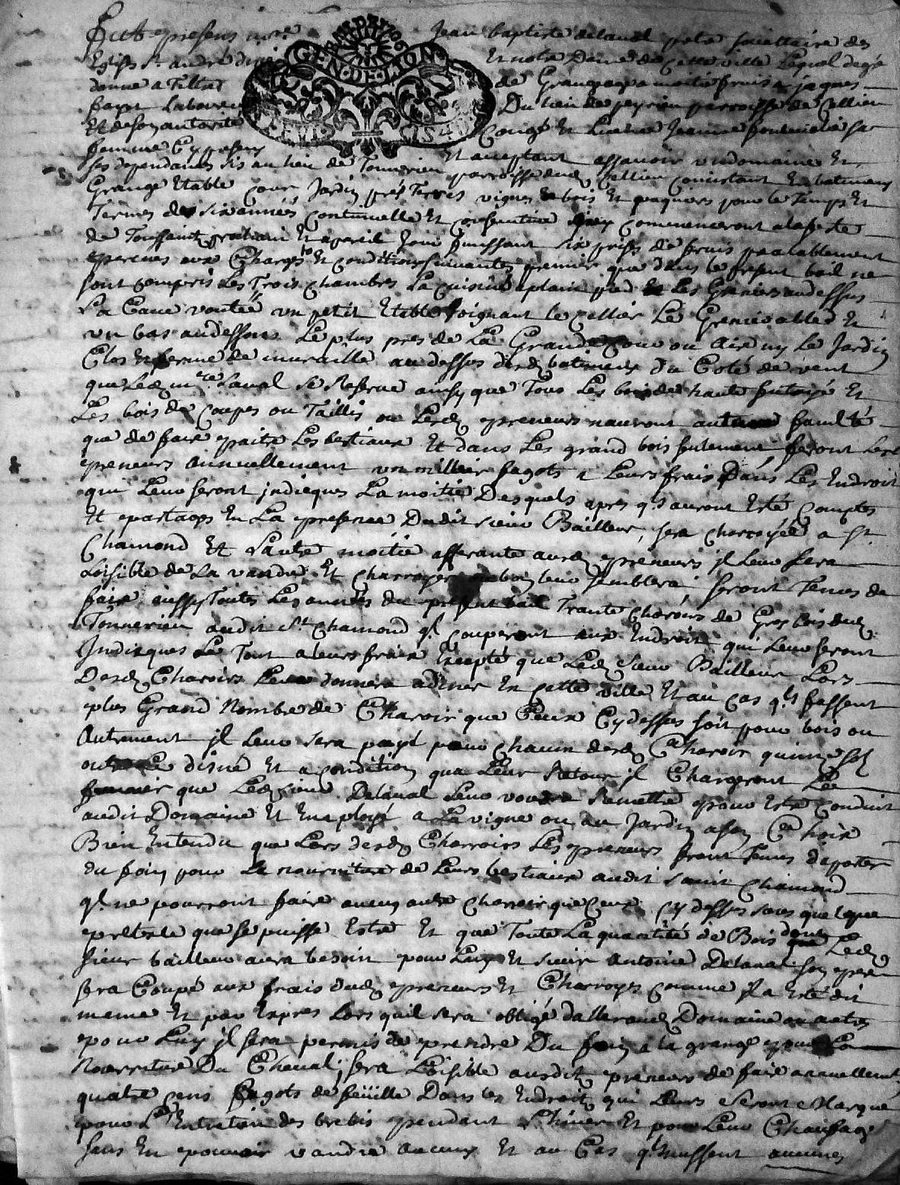 Fut present mre Jean baptiste delaval pretre societaire des
Eglises St andré diri Et notre Dame de cette ville Lequel de gré
donne a Tiltre de Grangeage a moitié fruis a jaques
fayet Laboureur Du lieu de peyrieu parroisse de Cellieu
Et de son autorité Congé Et Licence Jeanne sa
femme Cy presens Et acceptant assavoir un domaine Et
ses dependances sis au lieu de Tonnerieu parroisse dud Cellieu Consistant En batiments
Grange Etable Cour Jardin prés Terres vignes Bois Et paquiers pour le Temps Et
Termes de six années Continuelle Et Consecutive qui Commenceront a la feste
de Toussaint prochain Et pareil Jour finissant six prises de fruis prealablement
percües aux Charges Et Conditions suivantes premier que dans le present bail ne
sont compris Les Trois chambres La Cuisine a plain pied Et Les Greniers au dessus
La Cave voutée un petit Etable joignant le Cellier Le Grenier a bled Et
un bas au dessous Le plus pres de La Grande Cour ou Aire ny Le Jardin
Clos Enfermé de muraille au dessos desd batiments du Coté de vent
que Led mre Laval se Reserve ainsy que Tous Les bois de haute futaye Et
Les bois de Coupes ou Taillis ou Lesd preneurs nauront autre faculté
que de faire paitre Les bestiaux Et dans Les grand bois seulement feront Lesd
preneurs annuellement un millier fagots a Leurs frais Dans Les Endroit
qui Leur seront jndieques La moitié Desquels apres qls auront Esté Comptes
Et partages En La presence Dudit sieur Bailleur, sera charroyée a St
Chamond Et L'autre moitié afferante auxd preneurs jl Leur sera
Loisible de La vandre Et Charroyer bon leur semblera, seront Tenus de
faire aussy Toutes Les années du present bail Trante Charois de Gros bois dud
Tonnerieu audit St Chamond ql couperont aux Endroit qui Leur seront
Jndieques Le Tout a leurs frais Excepté que Led Sieur Bailleur Lors
Desd Charois Leur donnera a diner En cette ville Et au Cas qls fassent
plus Grand Nombre de Charoir que Ceux Cy dessos soit pour bois ou
Autrement jl Leur sera payé pour chacun desd Charoir quinze sol
outre Le disné Et a condition que Leur Retour jl Chargeront Le
fumier que Led sieur Delaval Leur voudra Remettre pour Estre Conduit
audit Domaine Et Employé a La vigne ou au Jardin a son Choix
Bien Entendu que Lors desd Charrois Les preneurs seront Tenus d'aporter
du foin pour La nourriture de Leurs bestiaux audit saint Chamond
ql ne pourront faire aucun autre charroir que Ceux Cy dessos sous quelque
pretexte que se puisse Estre Et que Toute La quantité de Bois dont Led
sieur bailleur aura besoin pour Luy Et sieur Antoine Delaval son pere
sera Coupé aux frais desd preneurs Et Charroyes comme jl a Esté dit
meme Et par Expres Lors quil sera obligé d'aller aud Domaine
pour Luy jl sera permis de prendre Du foin a la grange pour La
Nourriture Du Cheval; sera Loisible ausdit preneurs de faire annuellement
quatre cens fagots de feüille Dans Les Endroits qui Leurs seront Marqué
pour L'Entretien des brebis pendant L'hiver Et pour Leur Chaufage
sans En pouvoir vandre aucuns Et au Cas qls eussent aucunes
GEN. DE LION